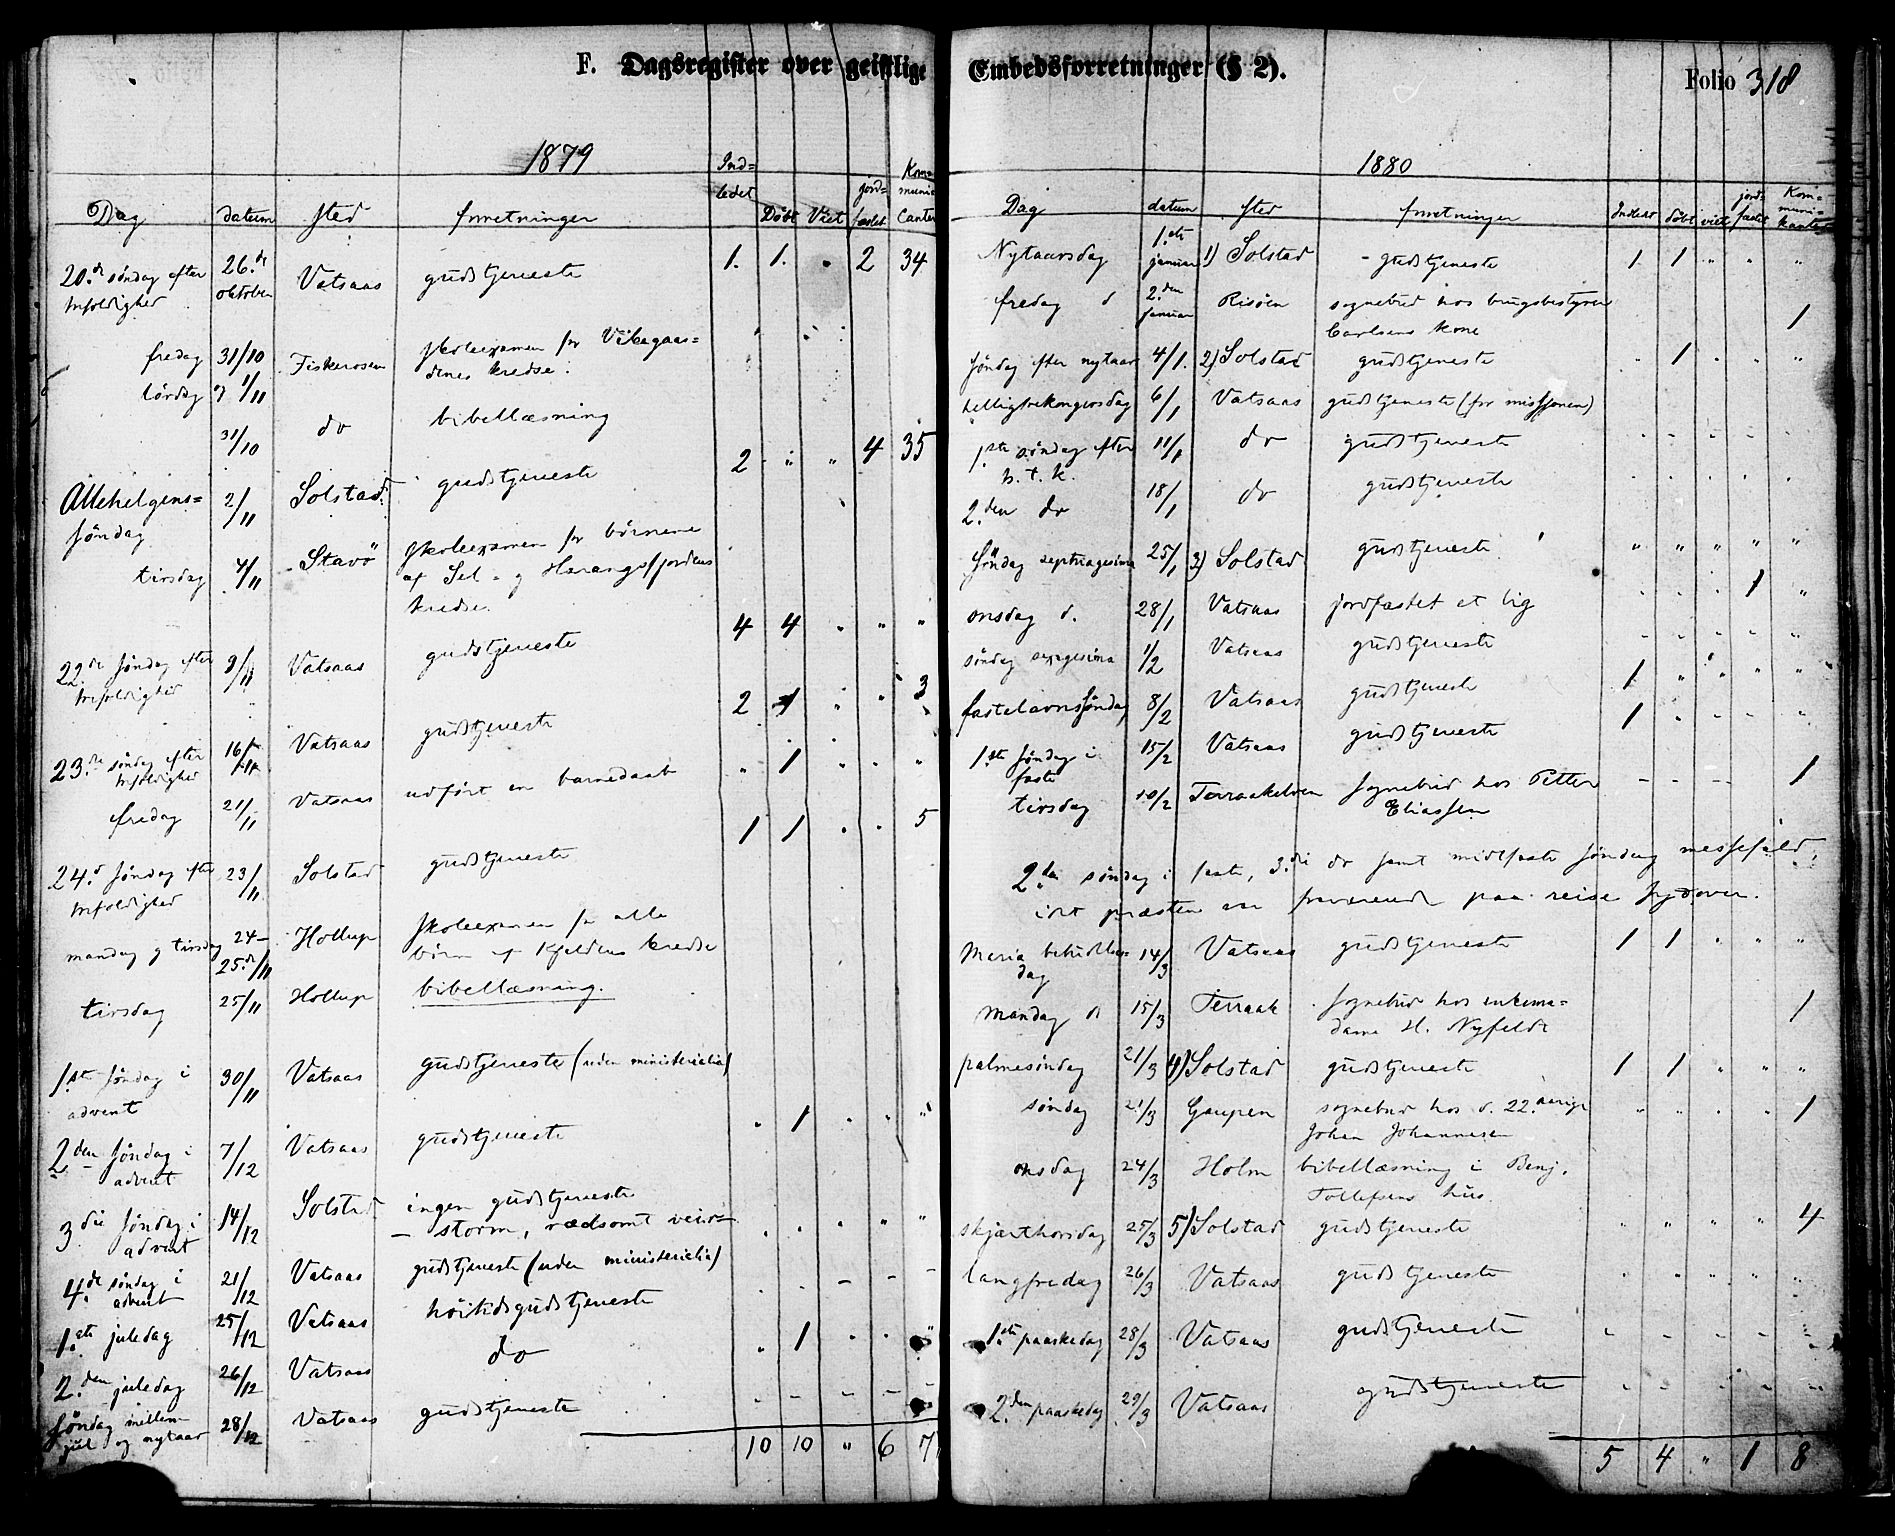 F. Dagsregister over geistlige
1879
Ind=
ledet Døbt Viet jord=
fæstet Kom=
muni
Canter
Dag datum sted forretninger
20.de søndag efter
trefoldighed 26.de
oktober Vatsaas gudstjeneste 1. 1. " 2 34
fredag 31/10 Fiskerosen skoleexamen for Vikegaar=
lørdag og 1/11 denes kredse.
31/10 do bibellæsning
Allehelgens=
søndag 2/11 Solstad gudstjeneste 2 " " 4 35
tirsdag 4/11 Stavö skoleexamen for børnene
af Sel- og Harangsfjordens
kredse.
22.de søndag efter
trefoldighed 9/11 Vatsaas gudstjeneste 4 4 " " "
23.de søndag efter
trefoldighed 16/11 Vatsaas gudstjeneste 2 1 " " 3
fredag 21/11 Vatsaas udført en barnedaab " 1 " " "
24.d søndag efter
trefoldighed 23/11 Solstad gudstjeneste 1 1 " " 5
mandag og tirsdag 24-
25.de/11 Hollup skoleexamen for alle
børn af Kjeldens kredse
tirsdag 25/11 Hollup bibellæsning.
1.ste søndag i
advent 30/11 Vatsaas gudstjeneste (uden ministerialia)
2den søndag i
advent 7/12 Vatsaas gudstjeneste " 1 " " "
3die søndag i
advent 14/12 Solstad ingen gudstjeneste
– storm, rædsomt veir –
4.de søndag i
advent 21/12 Vatsaas gudstjeneste (uden ministerialia)
1.ste juledag 25/12 Vatsaas høitidsgudstjeneste " 1 " " "
2.den juledag 26/12 Vatsaas do
søndag mellem
jul og nytaar 28/12 Vatsaas gudstjeneste
10 10 " 6 7
Embedsforretninger (§ 2).
Folio 318
1880
Dag datum sted forretninger Indledet døbt viet jord=
fæstet Kom=
muni=
kanter
Nytaarsdag 1.ste
januar 1) Solstad - gudstjeneste 1 1 " " "
fredag d 2.den
januar Risöen sognebud hos brugsbestyrer
Carlsens kone 1
søndag efter nytaar 4/1. 2) Solstad gudstjeneste " 1 " " "
helligtrekongersdag 6/1 Vatsaas gudstjeneste (for missjonen)
1.ste søndag efter
h. t. k. 11/1 do gudstjeneste
2.den do 18/1 do gudstjeneste
Søndag septuagesima 25/1 3) Solstad gudstjeneste " " " " "
onsdag d. 28/1 Vatsaas jordfæstet et lig " " " 1 "
søndag sexagesima 1/2 Vatsaas gudstjeneste
fastelavnssøndag 8/2 Vatsaas gudstjeneste 1 " " " "
1.ste søndag i
faste 15/2 Vatsaas gudstjeneste 1 " " " "
tirsdag 10/2 Terraakelven sognebud hos Petter
Eliassen 1
2.den søndag i faste, 3.die do samt midtfaste søndag messefald,
idet præsten var fraværende paa reise sydover.
Maria bebudelses=
dag 14/3 Vatsaas gudstjeneste 1 1 " " "
mandag d 15/3 Terraak sognebud hos enkema=
dame H. Nyfeldt 1
palmesøndag 21/3 4) Solstad gudstjeneste 1 1 " " "
søndag 21/3 Gaupen sognebud hos d. 22.aarige
Johan Johannesen " " " " 1
onsdag 24/3 Holm bibellæsning i Benj.
Tollefsens hus.
skjærthorsdag 25/3 5) Solstad gudstjeneste " " " " 4
langfredag 26/3 Vatsaas gudstjeneste
1.ste paaskedag 28/3 Vatsaas gudstjeneste
2.den paaskedag 29/3 Vatsaas gudstjeneste
5 4 " 1 8